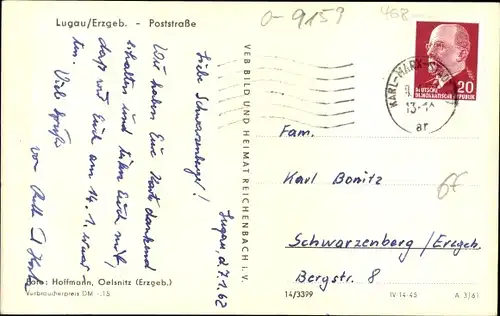 Lugau/Erzgeb. - Poststraße
o-9159
468
Lugau, d. 7.1.62
Liebe Schwarzenberger!
Wir haben Eure Karte dankend
erhalten und teilen Euch mit,
daß wir Euch am 14.1.
Viel Grüße
von
Foto: Hoffmann, Oelsnitz (Erzgeb.)
Verbraucherpreis DM -.15
VEB BILD UND HEIMAT REICHENBACH I. V.
KARL-MARX-
13-1
ar
20
DEUTSCHE
DEMOKRATISCHE REPUBLIK
Fam.
Karl Bonitz
Schwarzenberg/Erzgeb.
Bergstr. 8
6F
14/3399
IV-14-45
A 3/61